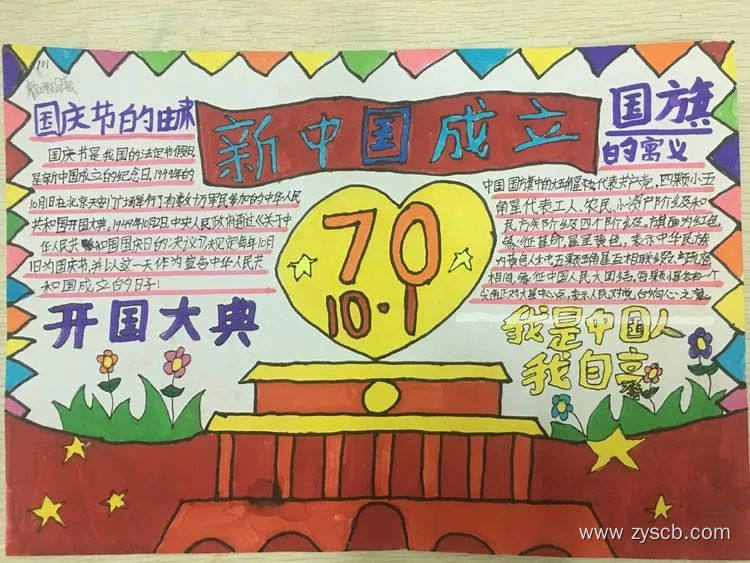 国庆节的由来
新中国成立
国旗
的寓义
国庆节是我国的法定节假日
是新中国成立的纪念日,1949年的
10月1日在北京天安门广场举行了有数十万军民参加的中华人民
共和国开国大典。1949年10月2日,中央人民政府通过《关于中
华人民共和国国庆日的决议》,规定每年10月
1日为国庆节,并以这一天作为宣告中华人民共
和国成立的日子!
开国大典
70
10·1
中国国旗中的大五角星代表共产党,四颗小五
角星代表工人、农民、小资产阶级和
民族资产阶级四个阶级。旗面为红色,
象征革命,星呈黄色,表示中华民族
为黄色人种。五颗五角星互相联缀、疏密
相间,象征中国人民大团结。每颗小星各有一个
尖角正对大星中心点,表示人民对党的向心之意。
我是中国人
我自豪
www.zyscb.com